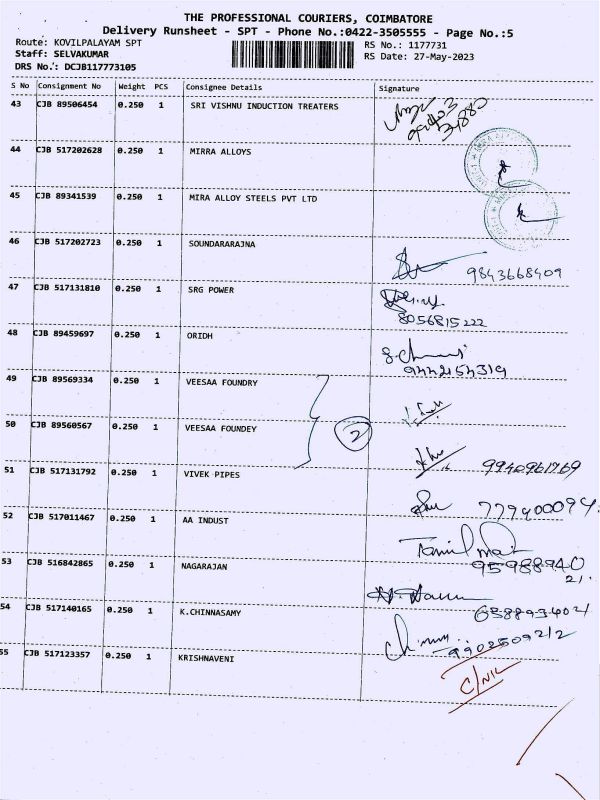 THE PROFESSIONAL COURIERS, COIMBATORE
Delivery Runsheet - SPT - Phone No.:0422-3505555 - Page No.:5
Route: KOVILPALAYAM SPT RS No.: 1177731
Staff: SELVAKUMAR RS Date: 27-May-2023
DRS No.: DCJB117773105
S No Consignment No Weight PCS Consignee Details Signature
43 CJB 89506454 0.250 1 SRI VISHNU INDUCTION TREATERS
44 CJB 517202628 0.250 1 MIRRA ALLOYS
45 CJB 89341539 0.250 1 MIRA ALLOY STEELS PVT LTD
46 CJB 517202723 0.250 1 SOUNDARARAJNA
9843668409
47 CJB 517131810 0.250 1 SRG POWER
8056815222
48 CJB 89459697 0.250 1 ORIDH
9442154319
49 CJB 89569334 0.250 1 VEESAA FOUNDRY
2
50 CJB 89560567 0.250 1 VEESAA FOUNDEY
51 CJB 517131792 0.250 1 VIVEK PIPES
9940961769
52 CJB 517011467 0.250 1 AA INDUST
53 CJB 516842865 0.250 1 NAGARAJAN
54 CJB 517140165 0.250 1 K.CHINNASAMY
55 CJB 517123357 0.250 1 KRISHNAVENI